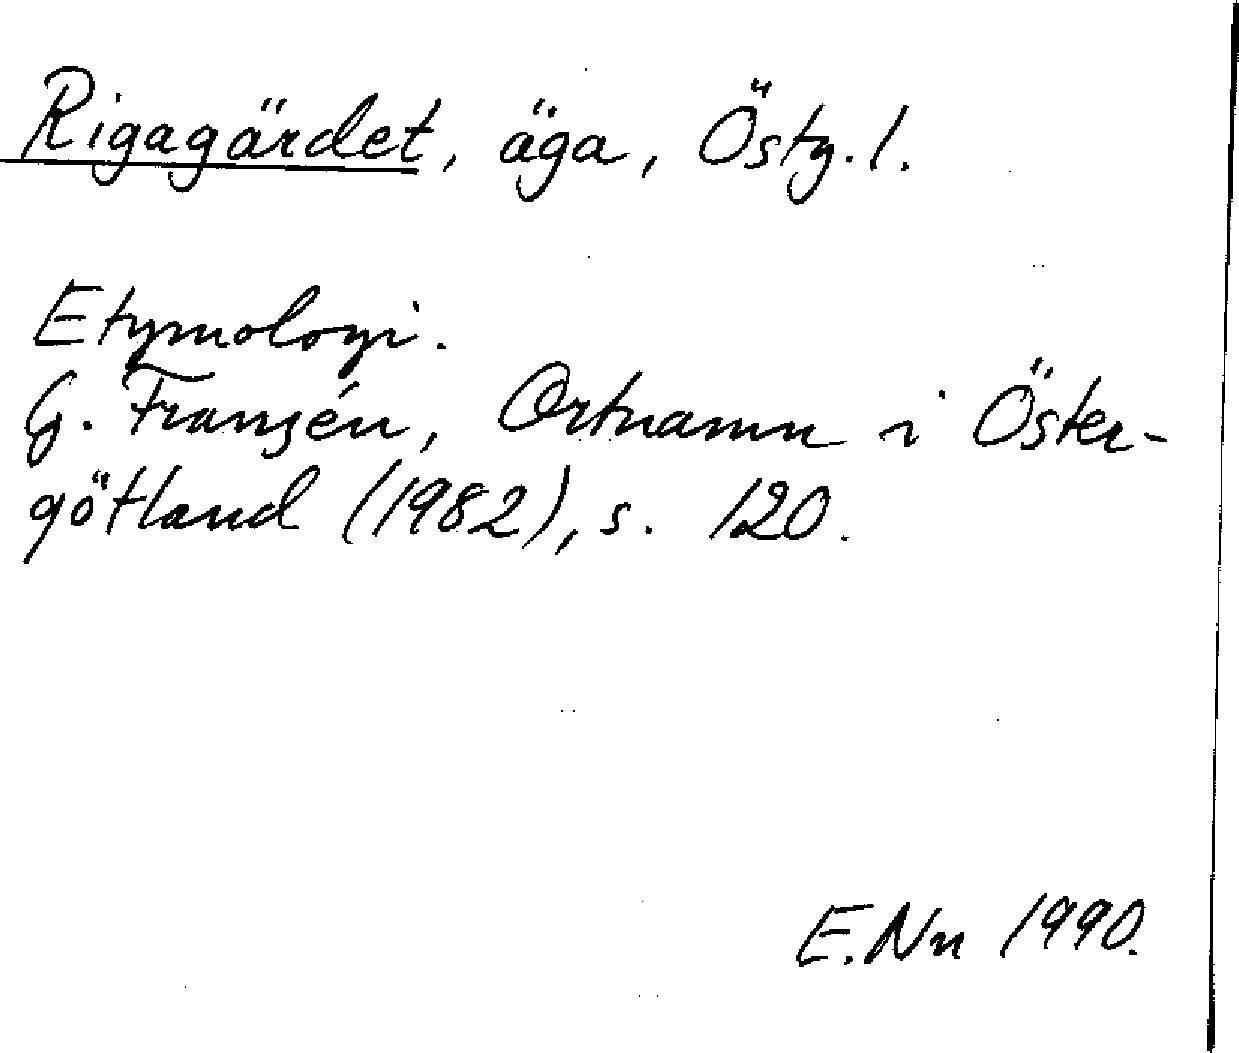 Rigagärdet, äga, Östg. l.
Etymologi.
G. Franzén, Ortnamn i Öster-
götland (1982), s. 120.
E.Nn 1990.